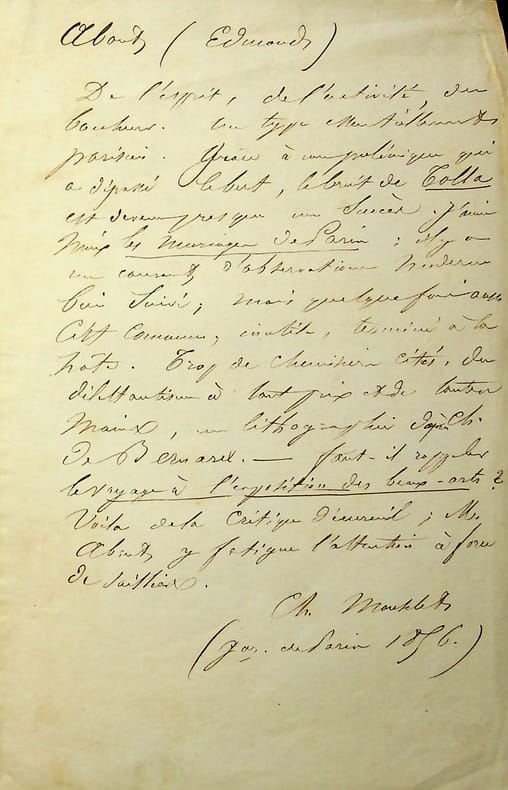 About (Edmond)
De l'esprit, de l'activité, du
bonheur. Un type essentiellement
parisien. Grâce à une polémique qui
a dépassé le but, le bruit de Tolla
est devenu presque un succès. J'aime
mieux les mariages de Paris ; il y a
un courant d'observation moderne
bien suivi ; mais quelquefois aussi
c'est commun, inutile, terminé à la
hâte. Trop de cités, du
dilettantisme à tout prix et de toutes
mains, un lithographié d'après Ch.
de Bernard. — Faut-il rappeler
le voyage à l'exposition des beaux-arts ?
Voilà de la critique d'écureuil ; M.
About y fatigue l'attention à force
de saillies.
Ch. Monselet
(gaz. de Paris 1856.)